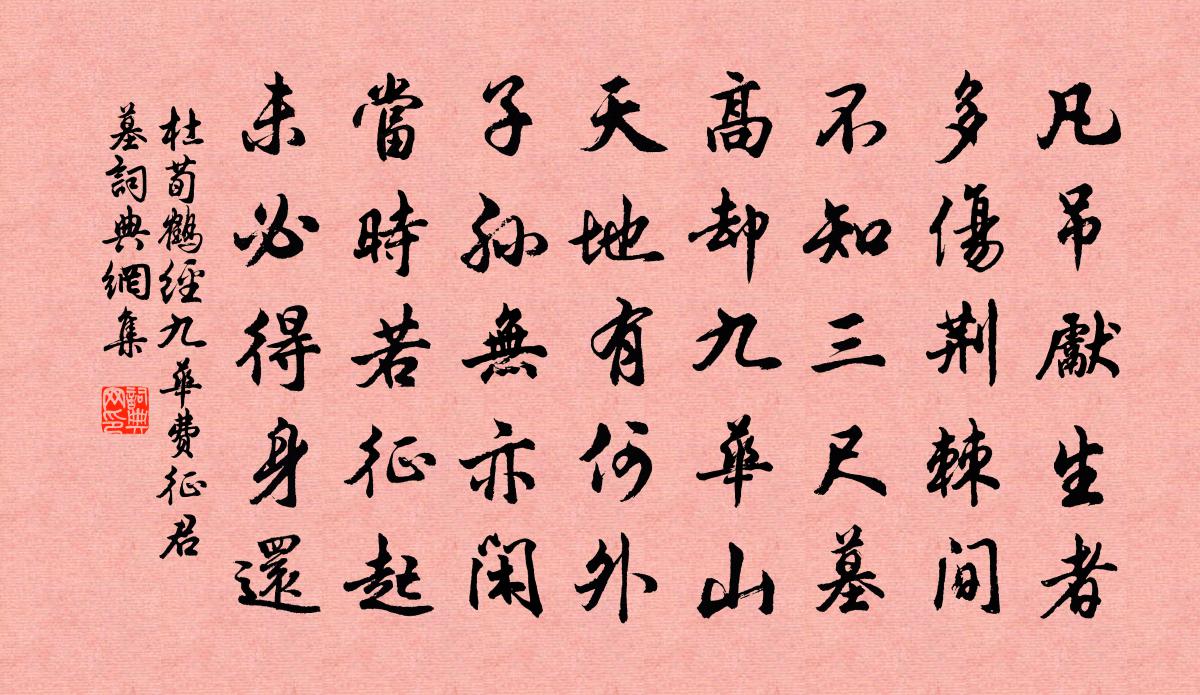 凡吊獻生者
多傷荆棘間
不知三尺墓
高却九華山
天地有何外
子孫無亦閑
當時若征起
未必得身還
杜荀鶴經九華費征君
墓詞典網集
詞典網印